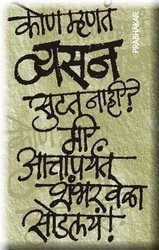 कोण म्हणतं
व्यसन
सुटत नाही?
मी
आत्तापर्यंत
शंभरवेळा
सोडलयं!
PRABHAKAR